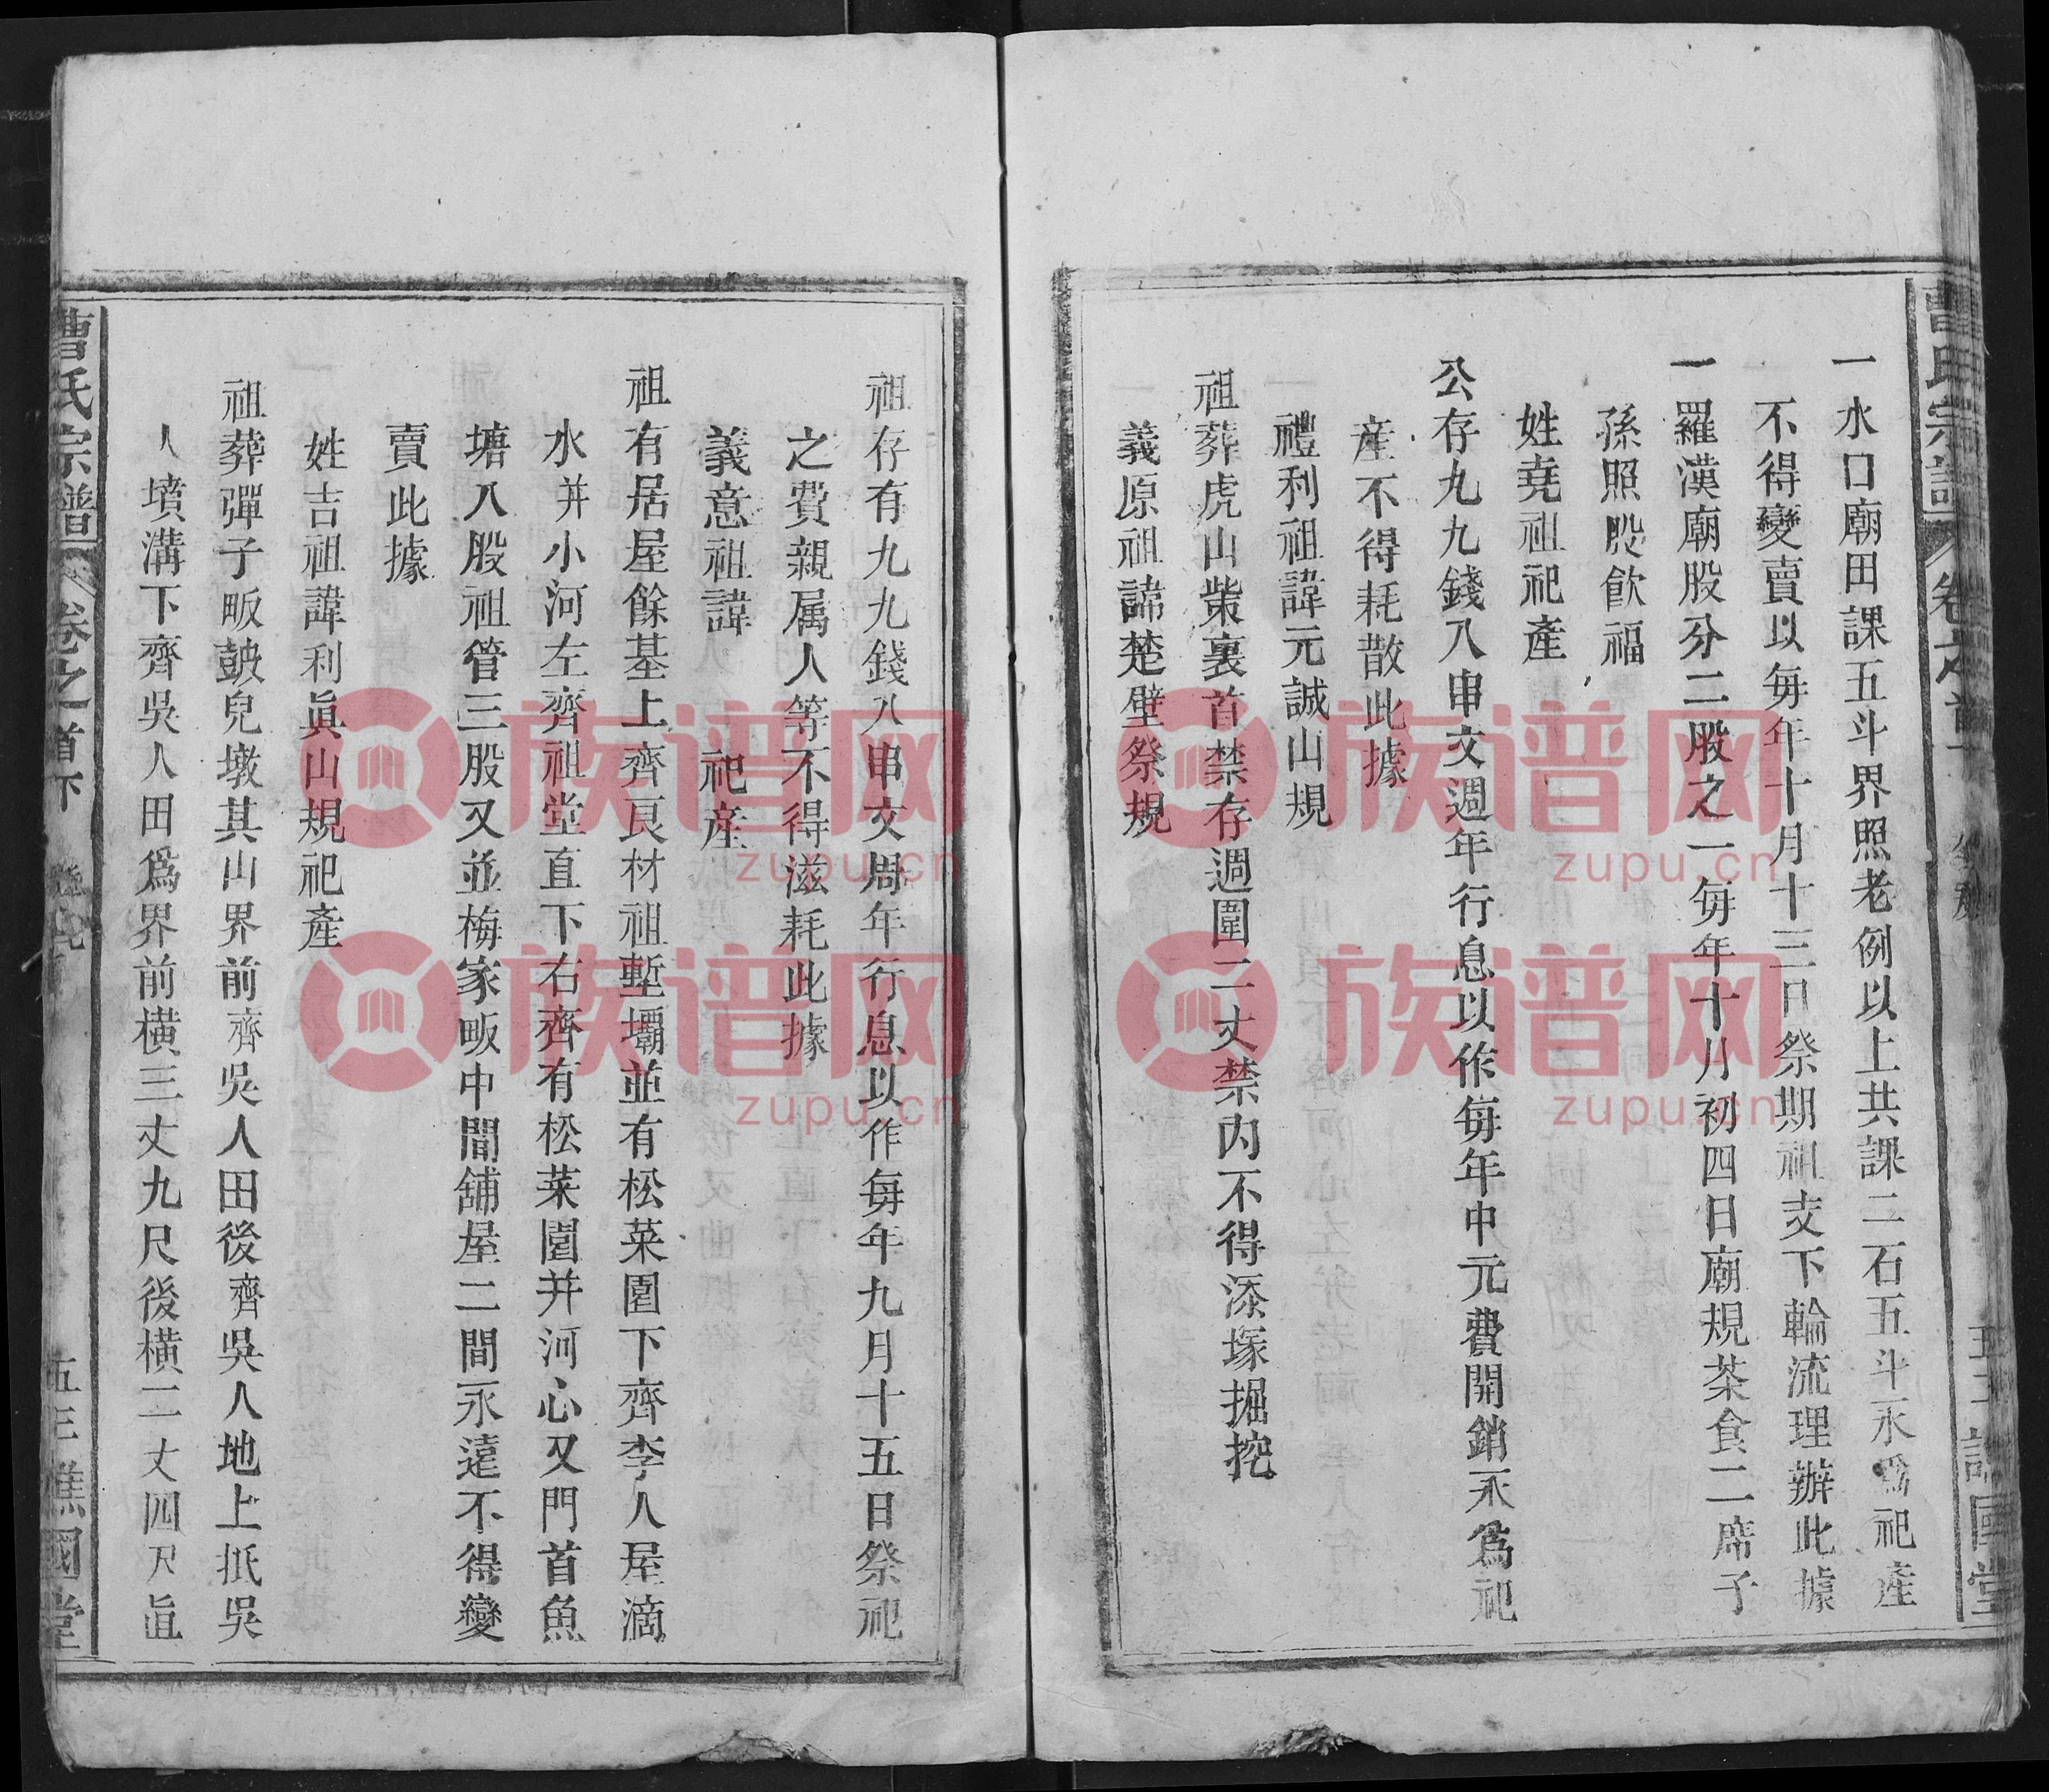 一水口廟田課五斗界照老例以上共課二石五斗永爲祀產
不得變賣以每年十月十三日祭期祖支下輪流理辦此據
一羅漢廟股分二股之一每年十月初四日廟規茶食二席子
孫照股飲福
姓堯祖祀產
公存九九錢八串文週年行息以作每年中元費開銷永爲祀
產不得耗散此據
禮利祖諱元誠山規
祖葬虎山柴裏首禁存週圍二丈禁內不得添塚掘挖
義原祖諱楚璧祭規
祖存有九九錢八串文周年行息以作每年九月十五日祭祀
之費親属人等不得滋耗此據
義意祖諱 祀產
祖有居屋餘基上齊良材祖塹壩並有松菜園下齊李人屋滴
水并小河左齊祖堂直下右齊有松菜園并河心又門首魚
塘八股祖管三股又並梅家畈中間舖屋二間永遠不得變
賣此據
姓吉祖諱利眞山規祀產
祖葬彈子畈皷兒墩其山界前齊吳人田後齊吳人地上抵吳
人墳溝下齊吳人田爲界前橫三丈九尺後橫二丈四尺直
曹氏宗譜 卷之首下 五三譙國堂
族谱网 zupu.cn
族谱网 zupu.cn
族谱网 zupu.cn
族谱网 zupu.cn